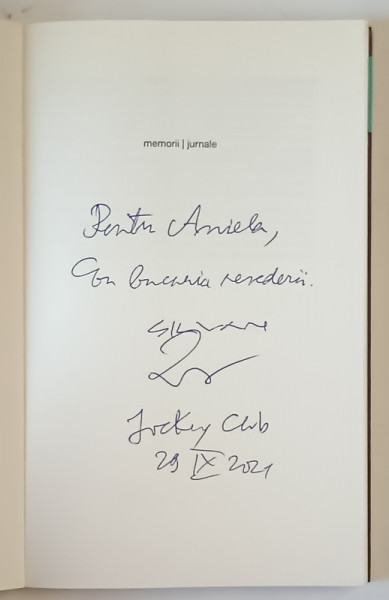 memorii | jurnale
Pentru Aniela,
Cu bucuria revederii.
Jockey Club
29 IX 2021